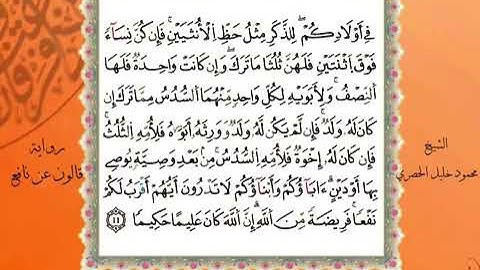 فِے أَوْلَٰدِكُمْ لِلذَّكَرِ مِثْلُ حَظِّ اِ۬لْأُنثَيَيْنِ فَإِن كُنَّ نِسَآءٗ
فَوْقَ اَ۪ثْنَتَيْنِ فَلَهُنَّ ثُلُثَا مَا تَرَكَ وَإِن كَانَتْ وَٰحِدَةٞ فَلَهَا
اَ۬لنِّصْفُ وَلِأَبَوَيْهِ لِكُلِّ وَٰحِدٖ مِّنْهُمَا اَ۬لسُّدُسُ مِمَّا تَرَكَ إِن
كَانَ لَهُۥ وَلَدٞ فَإِن لَّمْ يَكُن لَّهُۥ وَلَدٞ وَوَرِثَهُۥ أَبَوَٰهُ فَلِأُمِّهِ اِ۬لثُّلُثُ
فَإِن كَانَ لَهُۥ إِخْوَةٞ فَلِأُمِّهِ اِ۬لسُّدُسُ مِنۢ بَعْدِ وَصِيَّةٖ يُوصِے
بِهَا أَوْ دَيْنٍ ءَابَآؤُكُمْ وَأَبْنَآؤُكُمْ لَا تَدْرُونَ أَيُّهُمْ أَقْرَبُ لَكُمْ
نَفْعاٗ فَرِيضَةٗ مِّنَ اَ۬للَّهِ إِنَّ اَ۬للَّهَ كَانَ عَلِيماً حَكِيماٗ ١١
الشيخ
محمود خليل الحصري
رواية
قالون عن نافع